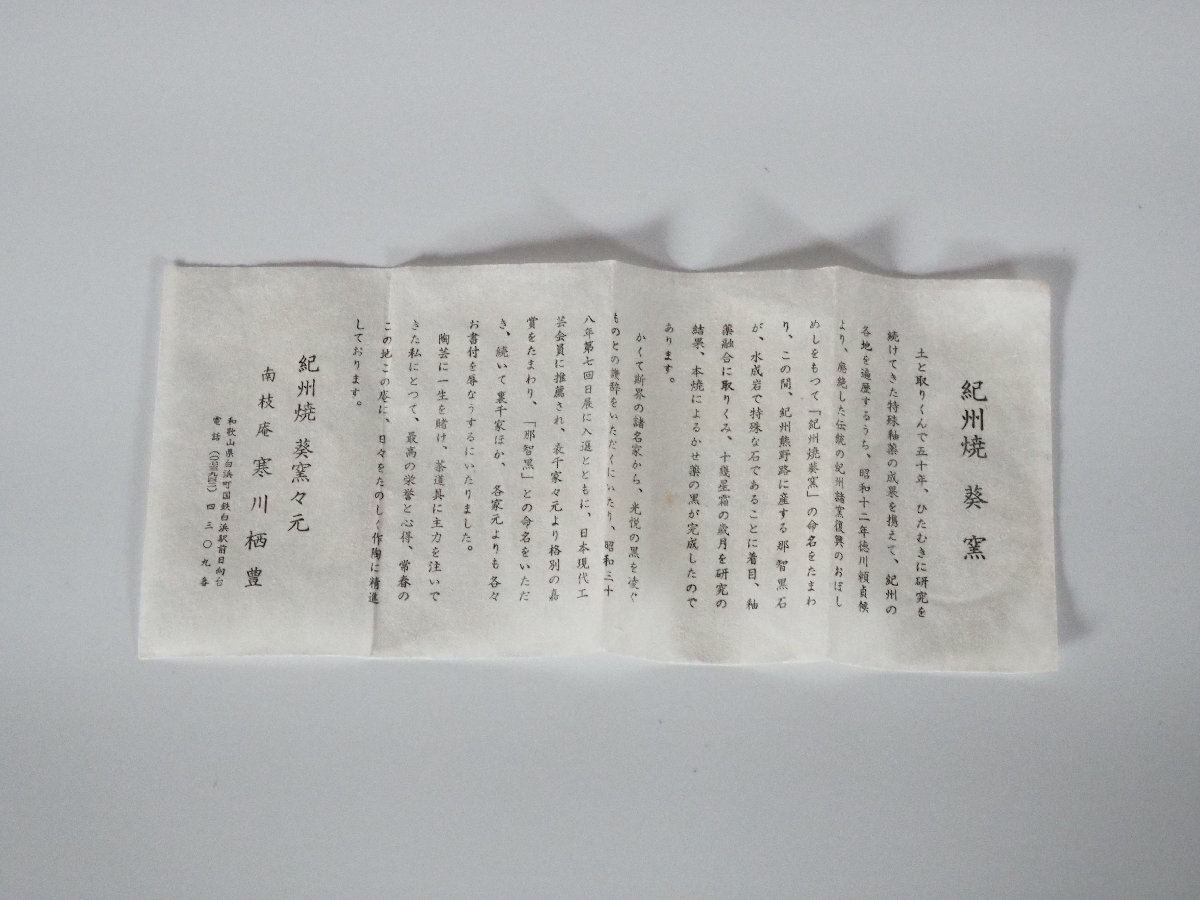 紀州焼 葵窯
土と取りくんで五十年、ひたむきに研究を
続けてきた特殊釉薬の成果を携えて、紀州の
各地を遍歴するうち、昭和十二年徳川頼貞候
より、廃絶した伝統の紀州諸窯復興のおぼし
めしをもつて「紀州焼葵窯」の命名をたまわ
り、この間、紀州熊野路に産する那智黒石
が、水成岩で特殊な石であることに着目、釉
薬融合に取りくみ、十幾星霜の歳月を研究の
結果、本焼によるかせ薬の黒が完成したので
あります。
かくて斯界の諸名家から、光悦の黒を凌ぐ
ものとの讃辞をいただくにいたり、昭和三十
八年第七回日展に入選とともに、日本現代工
芸会員に推薦され、表千家々元より格別の嘉
賞をたまわり、「那智黒」との命名をいただ
き、続いて裏千家ほか、各家元よりも各々
お書付を辱なうするにいたりました。
陶芸に一生を賭け、茶道具に主力を注いで
きた私にとつて、最高の栄誉と心得、常春の
この地この庵に、日々をたのしく作陶に精進
しております。
紀州焼 葵窯々元
南枝庵 寒川栖豊
和歌山県白浜町国鉄白浜駅前日向台
電話 四三〇九番